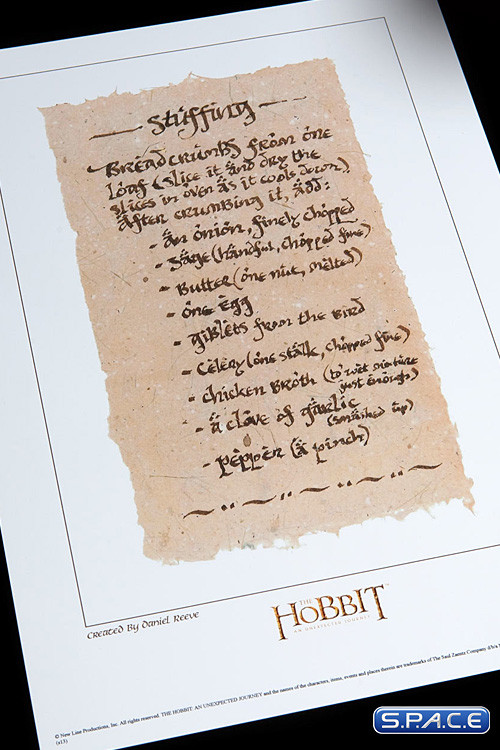 — Stuffing —
Breadcrumbs from one
loaf (slice it and dry the
slices in oven as it cools down)
After crumbing it, add:
- an onion, finely chopped
- Sage (handful, chopped fine)
- Butter (one nut, melted)
- one egg
- giblets from the bird
- Celery (one stalk, chopped fine)
- chicken broth (to wet mixture
just enough)
- a clove of garlic
(smashed up)
- pepper (a pinch)
Created By Daniel Reeve
THE HOBBIT™
AN UNEXPECTED JOURNEY
© New Line Productions, Inc. All rights reserved. THE HOBBIT: AN UNEXPECTED JOURNEY and the names of the characters, items, events and places therein are trademarks of The Saul Zaentz Company d/b/a
(s13)
S.P.A.C.E